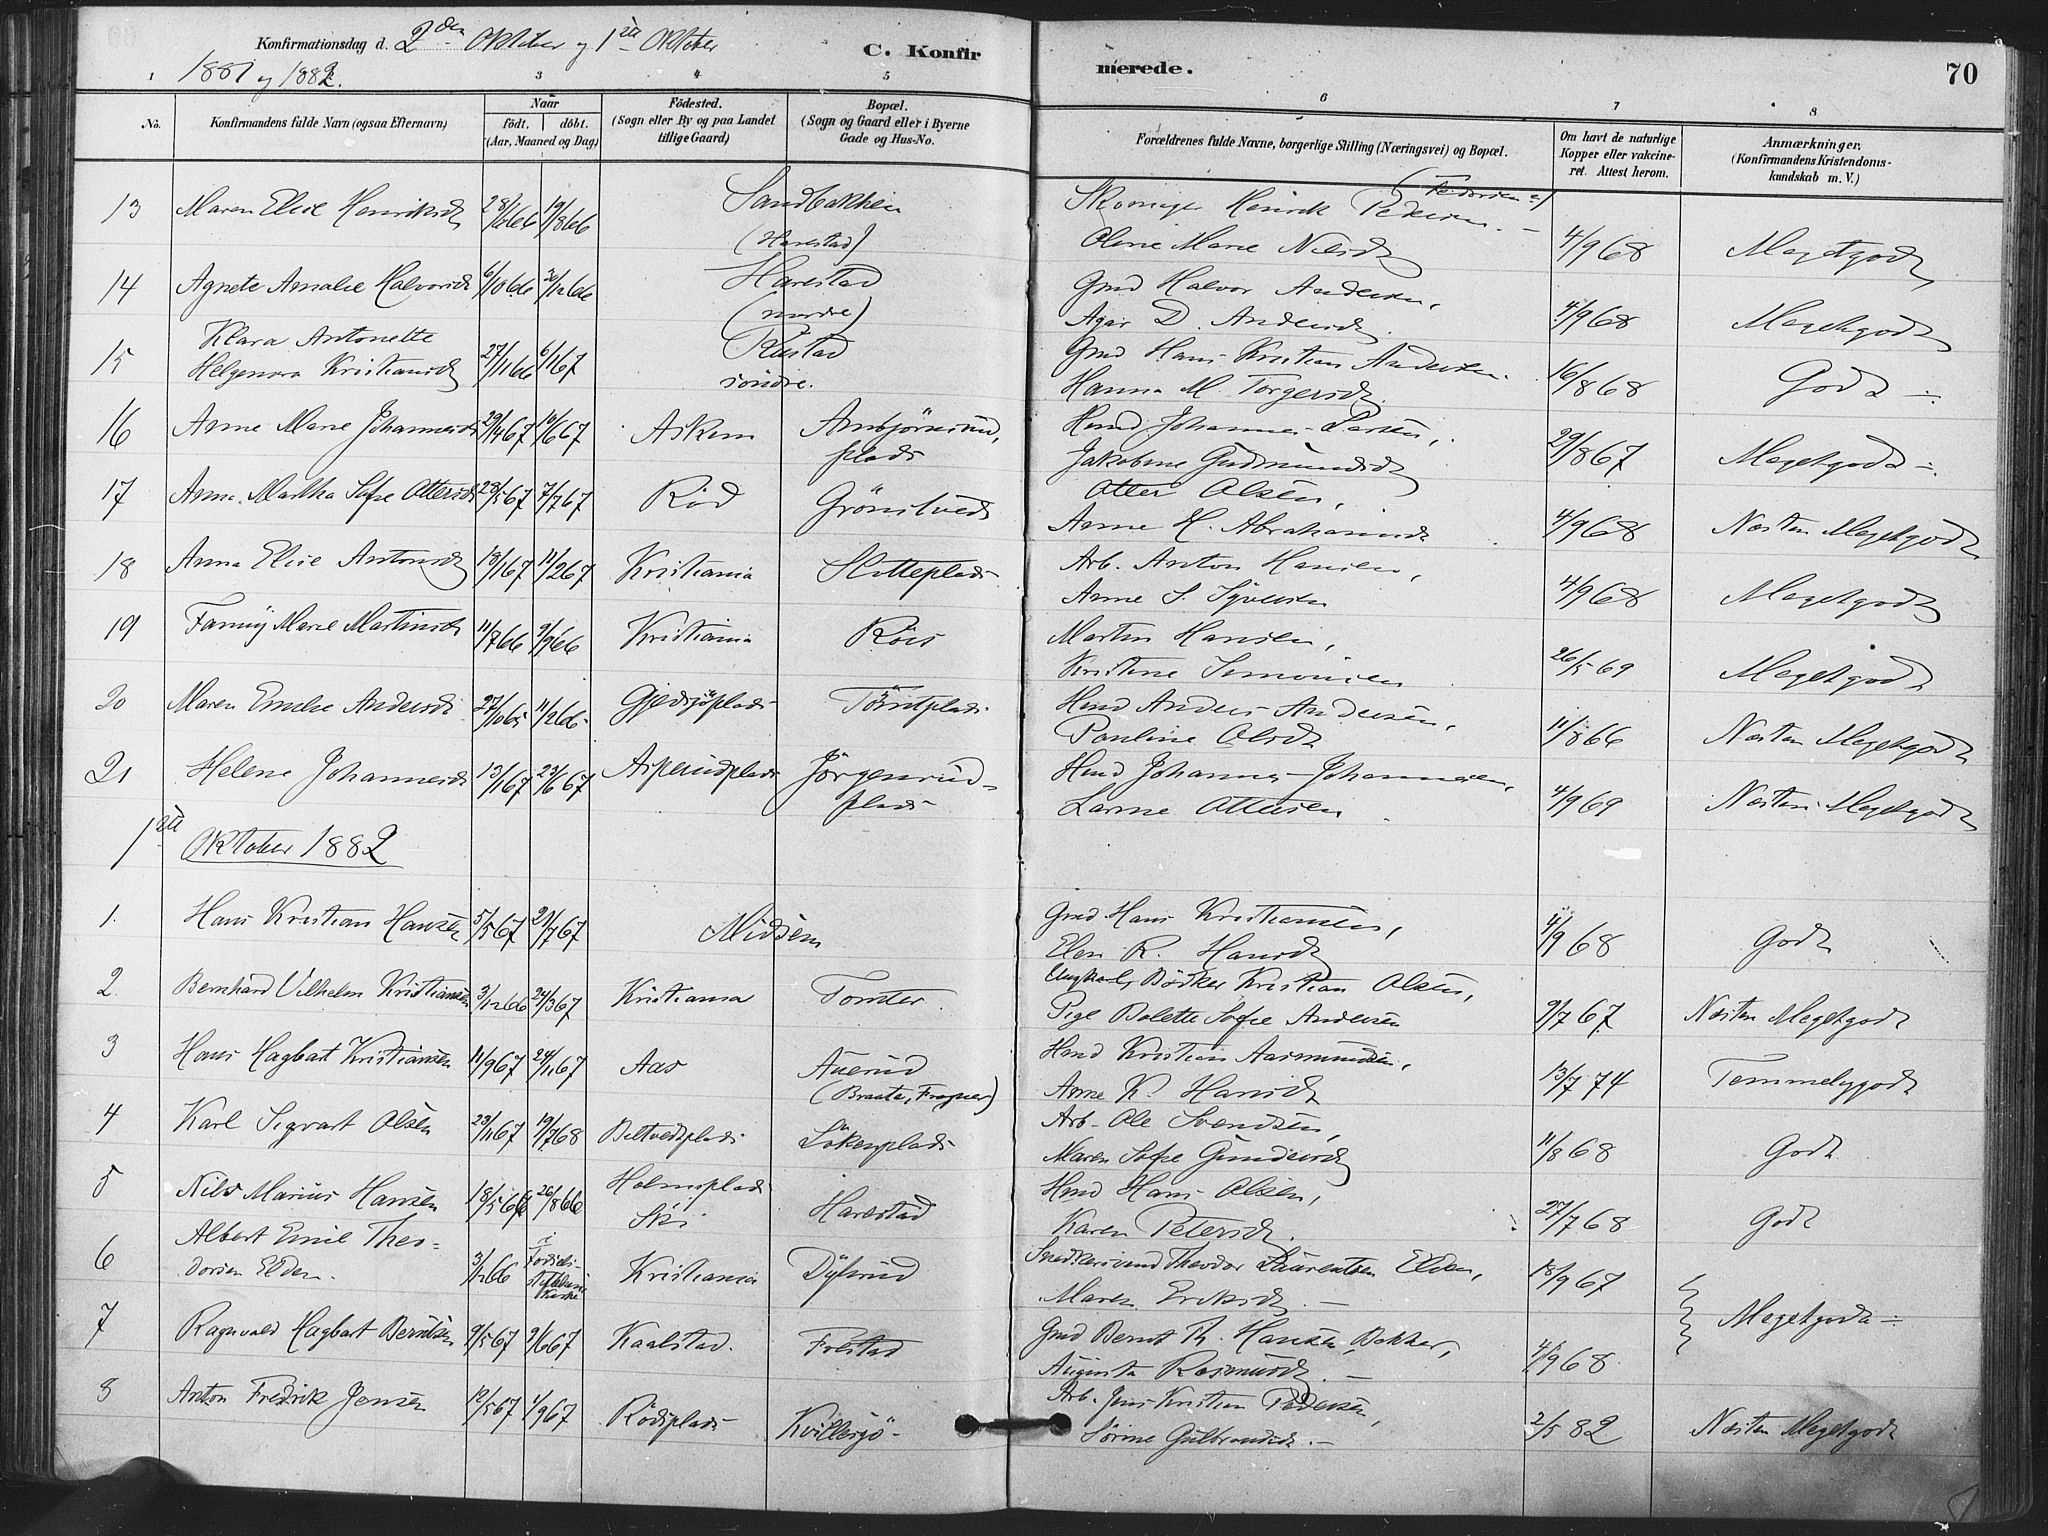 Konfirmationsdag d. 2den Oktober og 1ste Oktober
1881 og 1882.
C. Konfirmerede.
70
1 3 4 5 6 7 8
No.
Konfirmandens fulde Navn (ogsaa Efternavn)
Naar
født. døbt.
(Aar, Maaned og Dag)
Födested.
(Sogn eller By og paa Landet
tillige Gaard)
Bopæl.
(Sogn og Gaard eller i Byerne
Gade og Hus-No.
Forældrenes fulde Navne, borgerlige Stilling (Næringsvei) og Bopæl.
Om havt de naturlige
Kopper eller vakcine-
ret. Attest herom.
Anmærkninger,
(Konfirmandens Kristendoms-
kundskab m. V.)
13 Maren Elise Henriksdt Sandbakken
(Harestad) Henrik Pedersen
Oline Marie Nilsdt 4/9 68 Megetgodt
14 Agnete Amalie Halvorsdt 6/10 66 30/12 66 Harestad
(nordre) Grd Halvor Andersen,
Agar D. Andersdt 4/9 68 Megetgodt
15 Klara Antonette
Helgenora Kristiansdt 27/11 66 6/1 67
søndre. Grd Hans Kristian Andersen
Hanna M. Torgersdt. 16/8 68 Godt
16 Anne Marie Johannesdt 29/4 67 10/6 67 Askem Anbjörnsrud,
plads Hmd Johannes Larsen,
Jakobine Gudmundsdt 29/8 67 Megetgodt
17 Anna Martha Sofie Ottersdt 28/5 67 7/7 67 Röd Grönslvedt Otter Olsen,
Anne H. Abrahamsdt 4/9 68 Næsten Megetgodt
18 Anna Elise Antonsdt 19/1 67 11/2 67 Kristiania Slotteplads Arb. Anton Hansen,
Anne S. Syversen 4/9 68 Megetgodt
19 Fanny Marie Martinsdt 11/7 66 9/9 66 Kristiania Röis Martin Hansen,
Kristine Simonsen 26/5 69 Megetgodt
20 Maren Emelie Andersdt 27/10 65 11/2 66 Gjedsjöplads Tömtplads Hmd Anders Andersen,
Pauline Olsdt 11/8 66 Næsten Megetgodt
21 Helene Johannesdt 13/1 67 23/6 67 Asperudplads Jörgensrud-
plads Hmd Johannes Johannesen,
Larine Ottersen 4/9 69 Næsten Megetgodt
1ste Oktober 1882
1. Hans Kristian Hansen 5/5 67 21/7 67 Midsem Grd Hans Kristiansen,
Elen R. Hansdt 4/9 68 Godt
2 Bernhard Vilhelm Kristiansen 3/12 66 24/3 67 Kristiania Tomter Ungkarl, Bödker Kristian Olsen,
Pige Bolette Sofie Andersen 9/7 67 Næsten Megetgodt
3 Hans Hagbart Kristiansen 11/9 67 24/11 67 Aas Auerud
(Braate, Frogner) Hmd Kristian Aasmundsen,
Anne K. Hansdt 13/7 74 Temmeliggodt
4 Karl Sigvart Olsen 23/11 67 19/7 68 Biltvedtplads Lökenplads Arb. Ole Svendsen,
Maren Sofie Gundersdt 11/8 68 Godt
5 Nils Marius Hansen 18/5 66 26/8 66 Holmsplads
Ski Harestad Hmd Hans Olsen,
Karen Petersdt. 27/7 68 Godt
6 Albert Emil Theo-
dorsen Elden. 3/12 66 Kristiania Dylerud Snedkersvend Theodor Laurentsen Elden,
Maren Eriksdt 18/9 67
7 Ragnvald Hagbart Berntsen 9/5 67 9/6 67 Kaalstad. Frestad Grd Bernt Th. Hansen Bakker,
Augusta Rasmusdt 4/9 68 Megetgodt
8 Anton Fredrik Jensen 12/5 67 1/9 67 Rödsplads Kvillesjö Arb. Jens Kristian Pedersen,
Sörine Gulbrandsdt. 2/5 82 Næsten Megetgodt